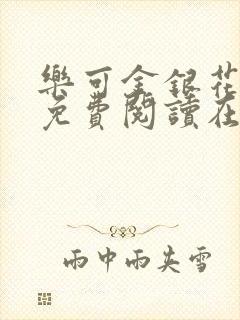 樂可金銀花
免費閱讀在
雨中雨夾雪